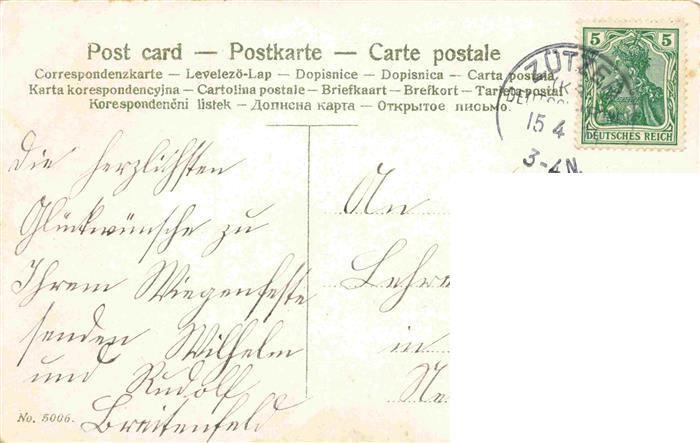 Post card — Postkarte — Carte postale
Correspondenzkarte — Levelező-Lap — Dopisnice — Dopisnica — Carta postala
Karta korespondencyjna — Cartolina postale — Briefkaart — Brefkort — Tarjeta postal
Korespondenčni listek — Дописна карта — Открытое письмо.
5 5
DEUTSCHES REICH
ZÜTZ
15 4
3-4N.
Die herzlichsten
Glückwünsche zu
Ihrem Wiegenfeste
senden Wilhelm
und Rudolf
Breitenfeld
An
Lehre
in
Ne
No. 5006.